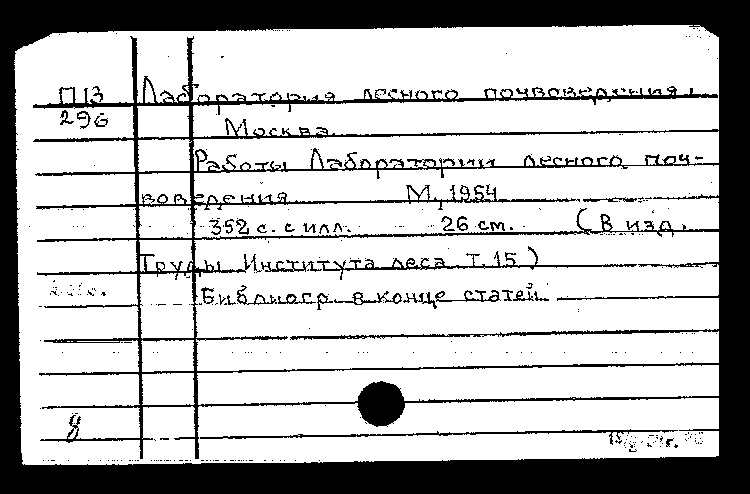 П13 Лаборатория лесного почвоведения,
296
Москва
Работы Лаборатории лесного поч-
воведения М, 1954
352 с. с илл. 26 см. (В изд.
Труды Института леса Т. 15)
Библиогр. в конце статей
8